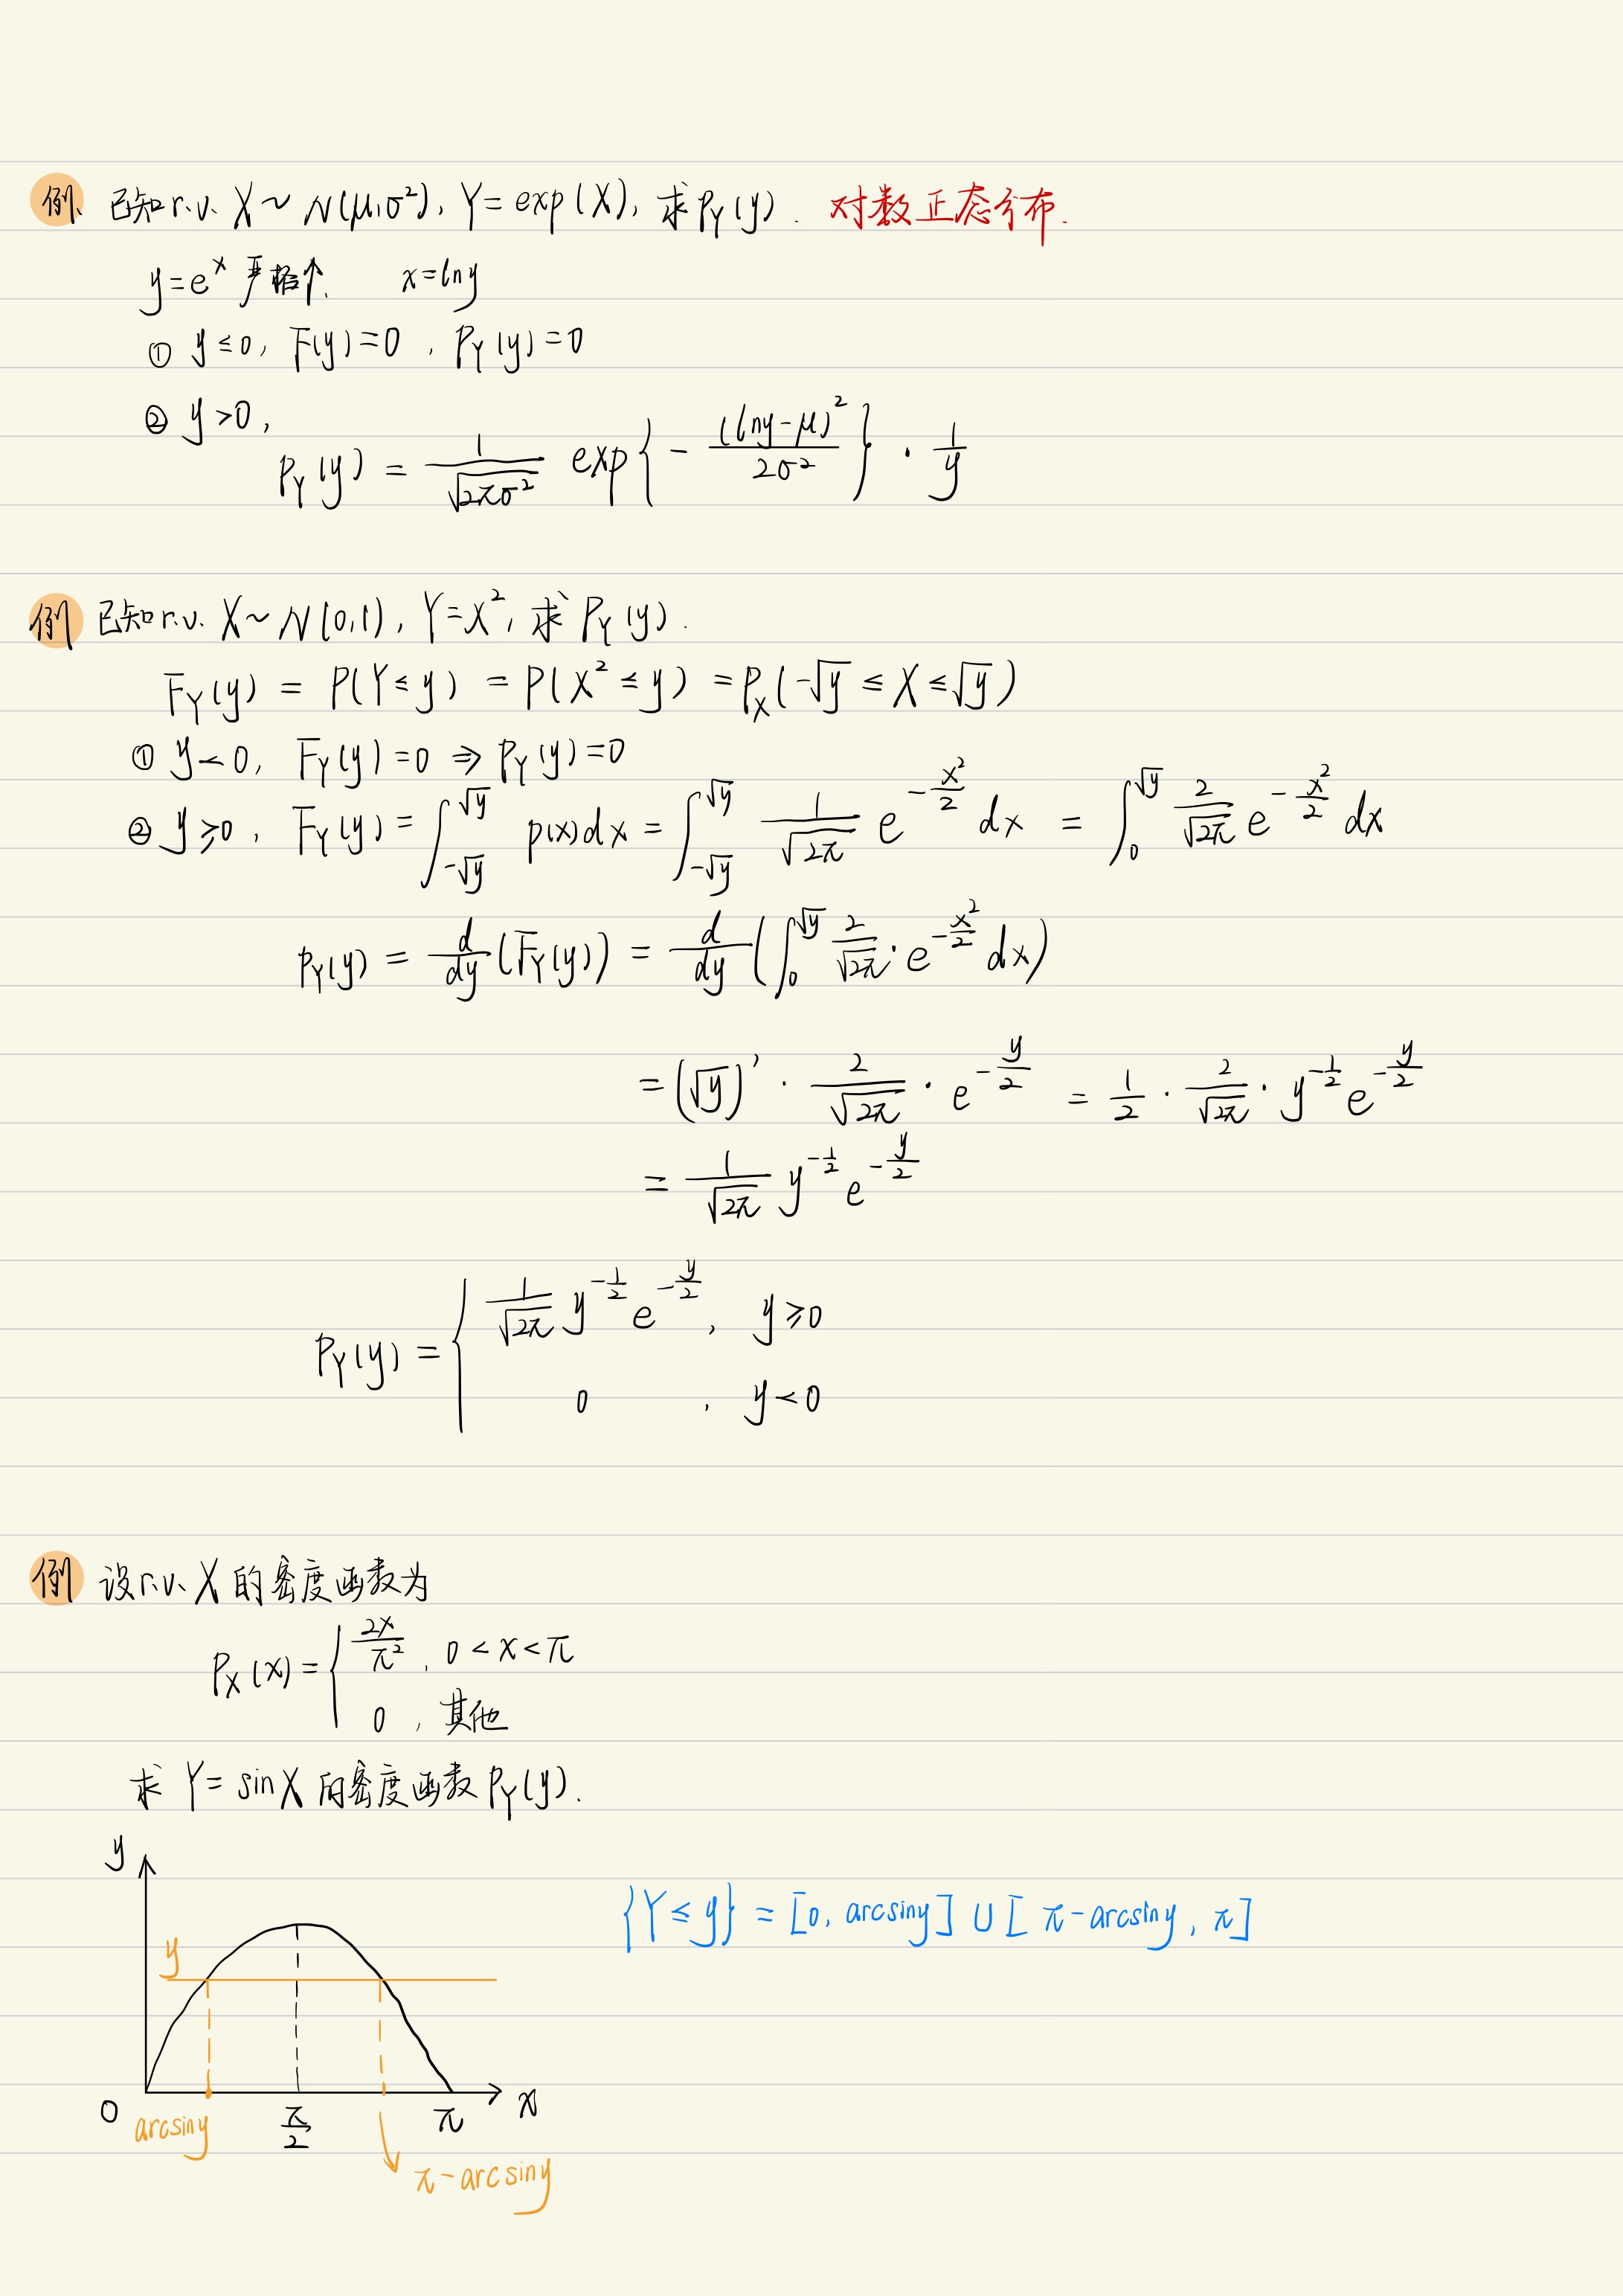 例、已知r.v. X ~ N(μ,σ²), Y = exp(X), 求 p_Y(y). 对数正态分布.
y = e^x 严格↑. x = lny
① y ≤ 0, F(y) = 0, P_Y(y) = 0
② y > 0,
P_Y(y) = \frac{1}{\sqrt{2πσ²}} exp{ - \frac{(lny-μ)²}{2σ²} } · \frac{1}{y}
例 已知r.v. X ~ N(0,1), Y = X², 求 P_Y(y).
F_Y(y) = P(Y ≤ y) = P(X² ≤ y) = P_X(-√y ≤ X ≤ √y)
① y < 0, F_Y(y) = 0 ⇒ P_Y(y) = 0
② y ≥ 0, F_Y(y) = ∫_{-√y}^{√y} p(x)dx = ∫_{-√y}^{√y} \frac{1}{\sqrt{2π}} e^{-\frac{x²}{2}} dx = ∫_0^{√y} \frac{2}{\sqrt{2π}} e^{-\frac{x²}{2}} dx
p_Y(y) = \frac{d}{dy}(F_Y(y)) = \frac{d}{dy}(∫_0^{√y} \frac{2}{\sqrt{2π}} · e^{-\frac{x²}{2}} dx)
= (√y)' · \frac{2}{\sqrt{2π}} · e^{-\frac{y}{2}} = \frac{1}{2} · \frac{2}{\sqrt{2π}} · y^{-\frac{1}{2}} e^{-\frac{y}{2}}
= \frac{1}{\sqrt{2π}} y^{-\frac{1}{2}} e^{-\frac{y}{2}}
P_Y(y) = { \frac{1}{\sqrt{2π}} y^{-\frac{1}{2}} e^{-\frac{y}{2}}, y ≥ 0
0, y < 0
例 设r.v. X 的密度函数为
P_X(x) = { \frac{2x}{π²}, 0 < x < π
0, 其他
求 Y = sinX 的密度函数 P_Y(y).
y
{Y ≤ y} = [0, arcsiny] ∪ [π-arcsiny, π]
y
0 arcsiny \frac{π}{2} π x
π-arcsiny